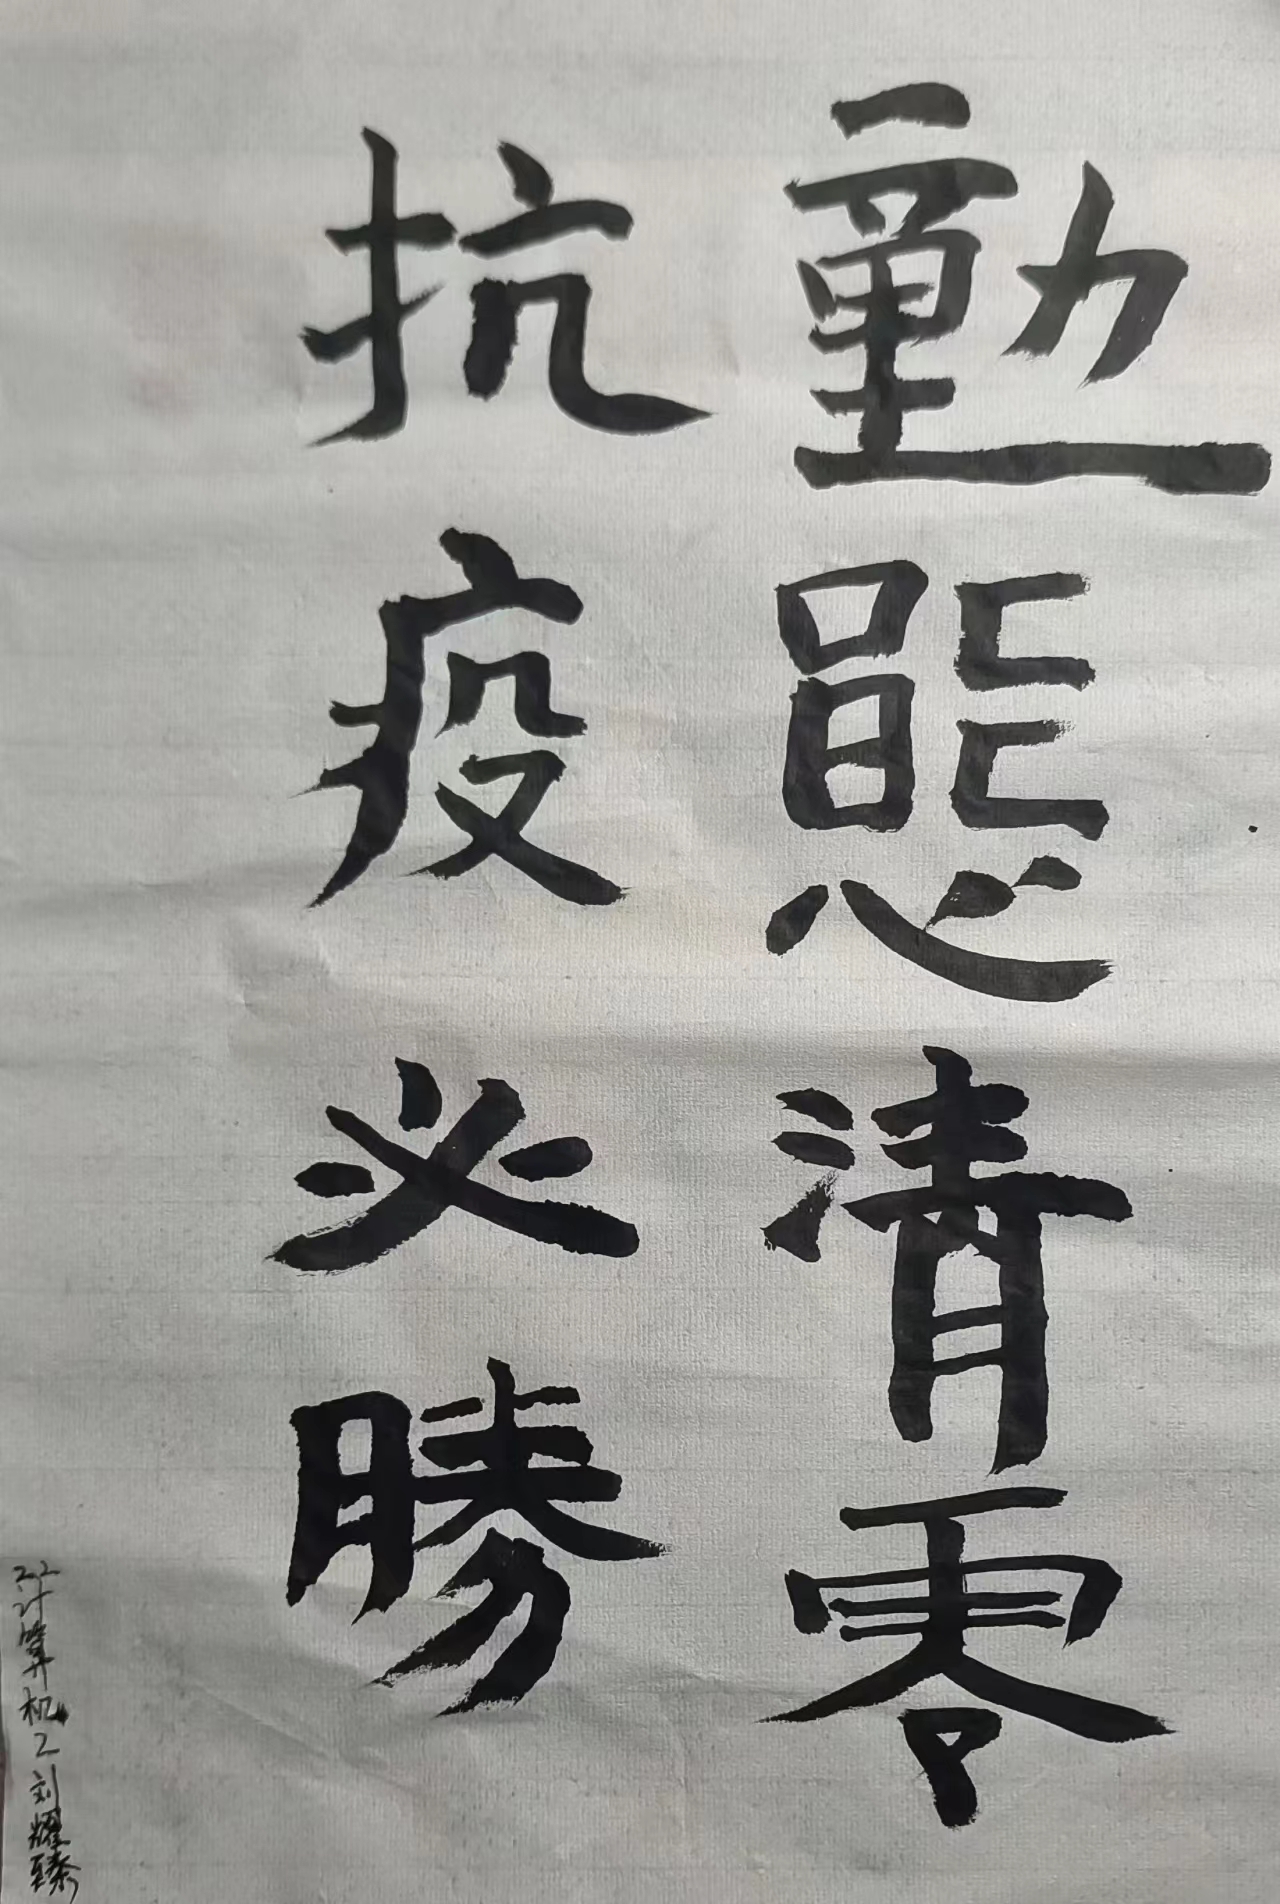 動態清零
抗疫必勝
22计算机2刘耀臻